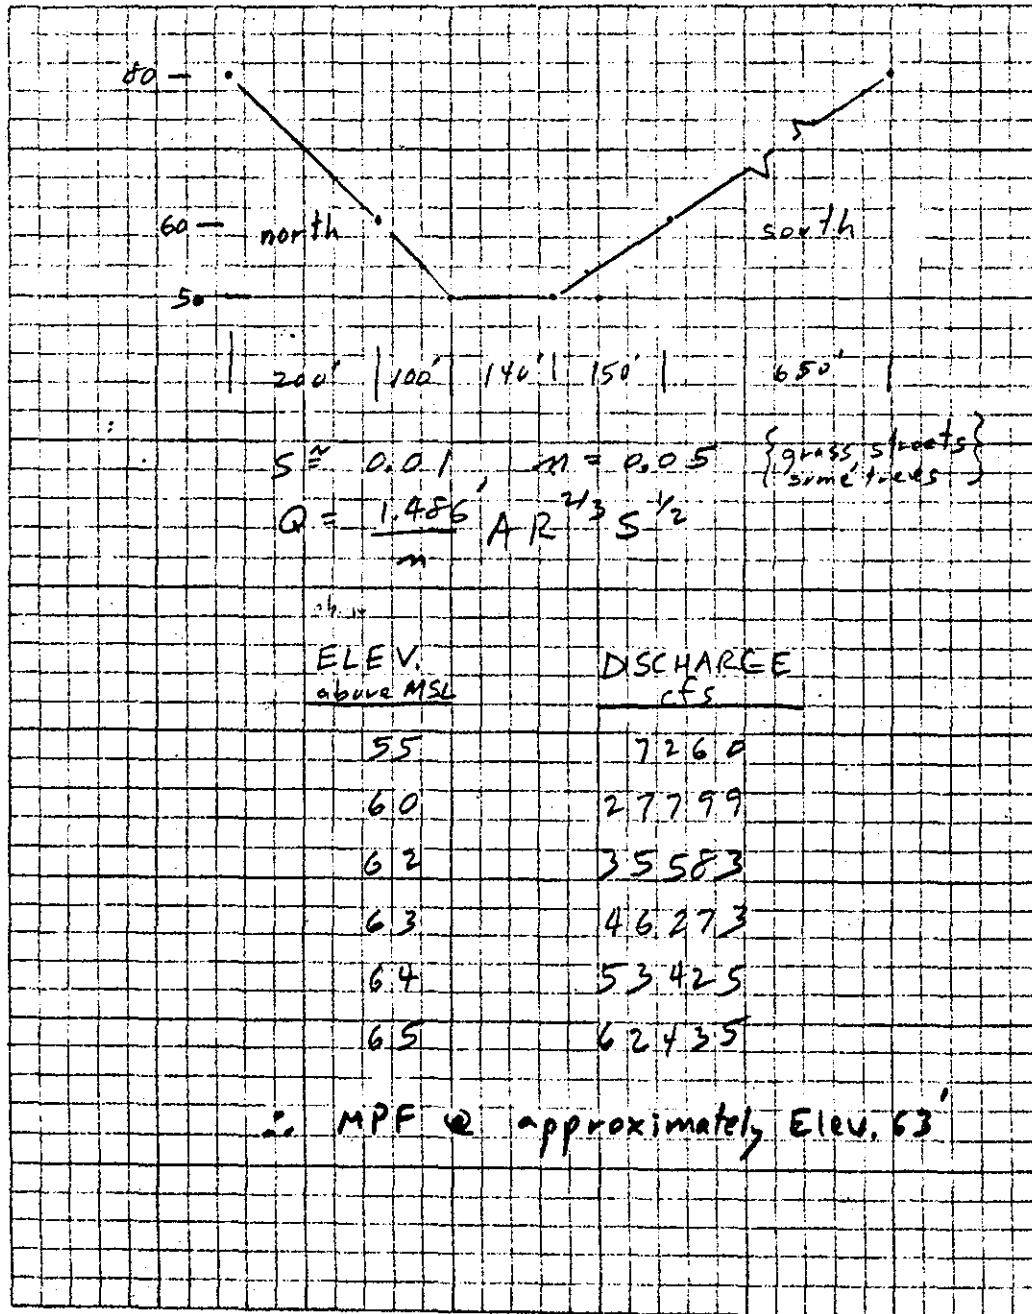 80 —
60 — north south
50
200' 100' 140' 150' 650'
S ≅ 0.01 n = 0.05 {grass streets
some trees}
Q = 1.486/n A R^2/3 S^1/2
ELEV. DISCHARGE
above MSL cfs
55 7260
60 27799
62 35583
63 46273
64 53425
65 62435
∴ MPF @ approximately Elev. 63'